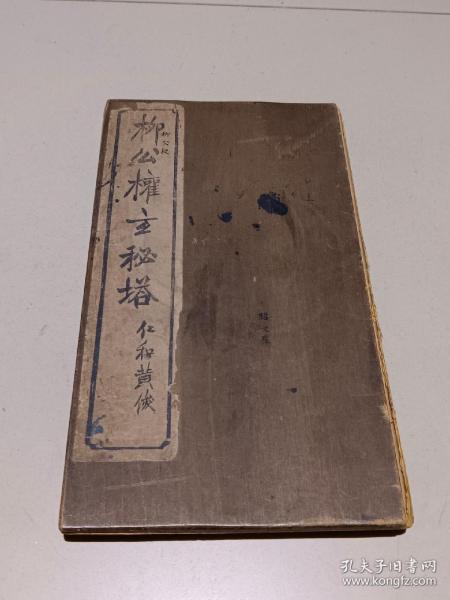 柳公權玄秘塔
仁和黄俊
柳公权
孔夫子旧书网
www.kongfz.com